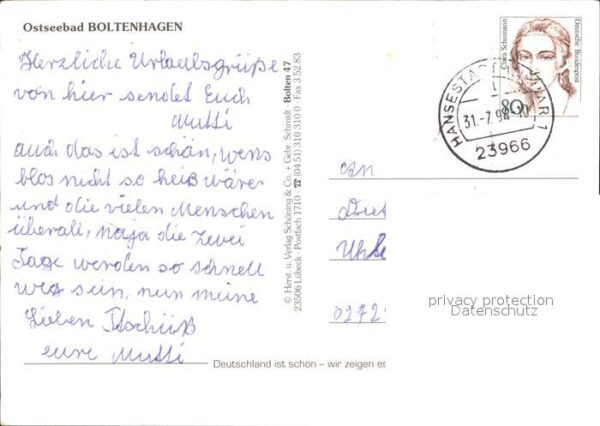 Ostseebad BOLTENHAGEN
Herzliche Urlaubsgrüße
von hier sendet Euch
Mutti
auch das ist schön, wens
blos nicht so heiß wäre
und die vielen Menschen
überall, naja die zwei
Tage werden so schnell
weg sein, nun meine
Lieben Tschüß
eure Mutti
© Herst. u. Verlag Schöning & Co. + Gebr. Schmidt · Bolten 47
23506 Lübeck · Postfach 1710 · ☎ (04 51) 310 310 0 · Fax 3 52 83
Clara Schumann
Deutsche Bundespost
80
HANSESTADT WISMAR 1
31.-7.
23966
an
Uhle
0272
privacy protection
Datenschutz
Deutschland ist schön – wir zeigen es